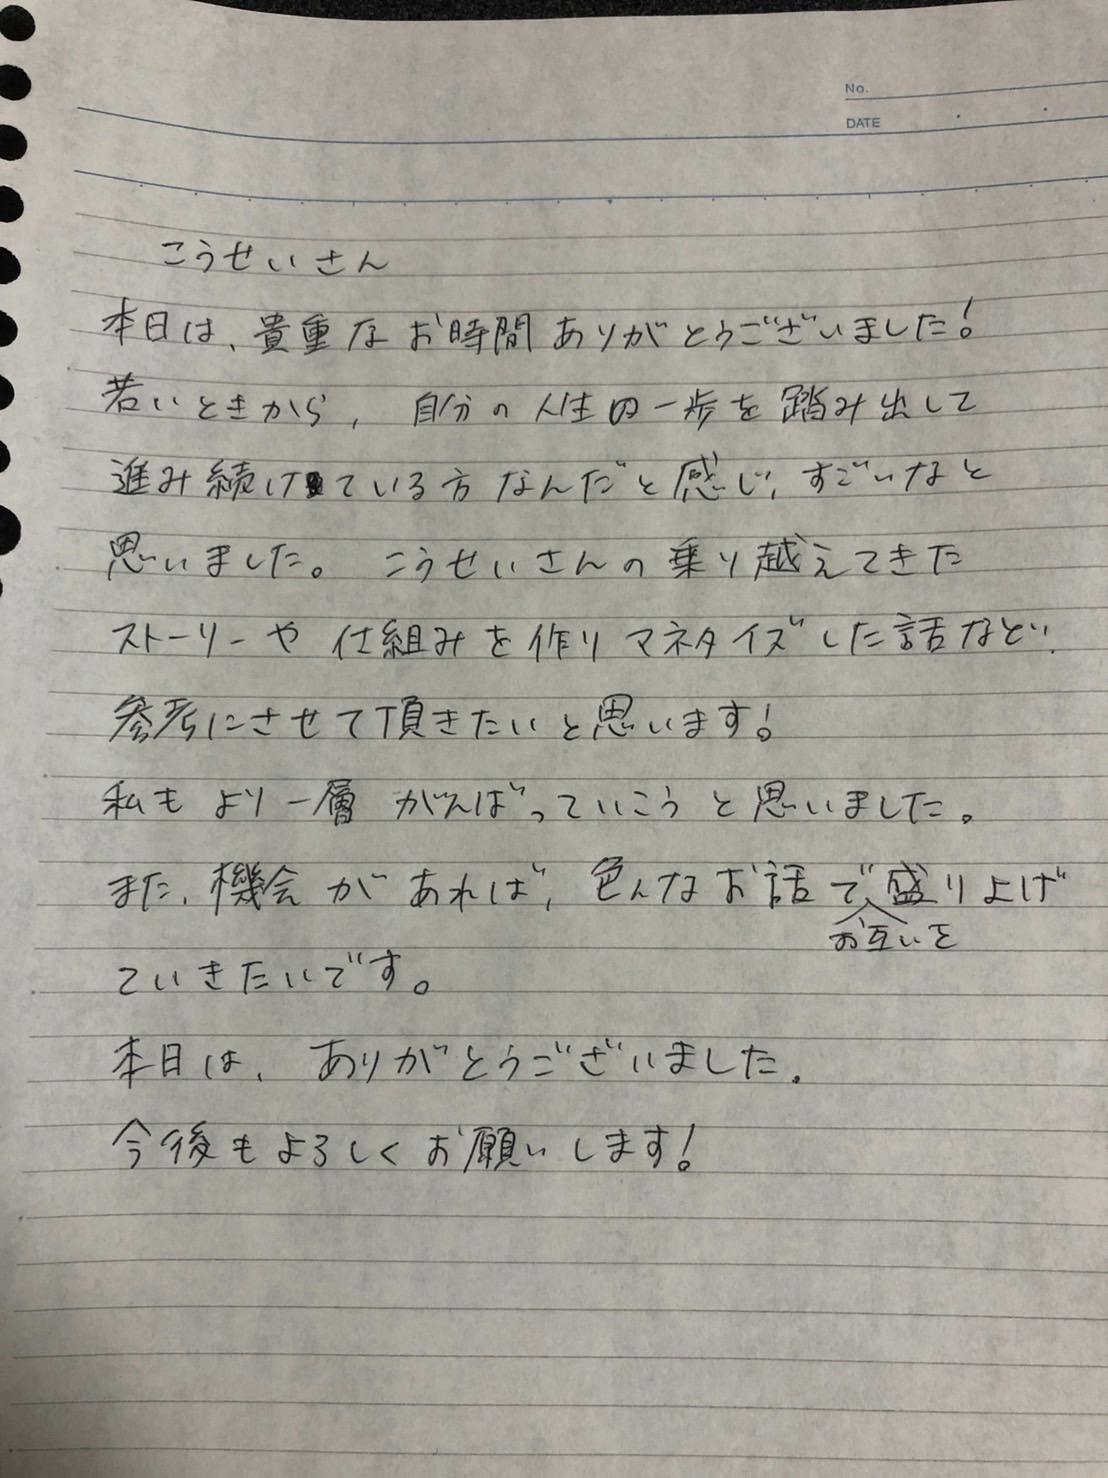 No.
DATE
こうせいさん
本日は、貴重なお時間ありがとうございました!
若いときから、自分の人生の一歩を踏み出して
進み続けている方なんだと感じ、すごいなと
思いました。こうせいさんの乗り越えてきた
ストーリーや仕組みを作りマネタイズした話など、
参考にさせて頂きたいと思います!
私もより一層がんばっていこうと思いました。
また、機会があれば、色んなお話でお互いを盛りよげ
ていきたいです。
本日は、ありがとうございました。
今後もよろしくお願いします!